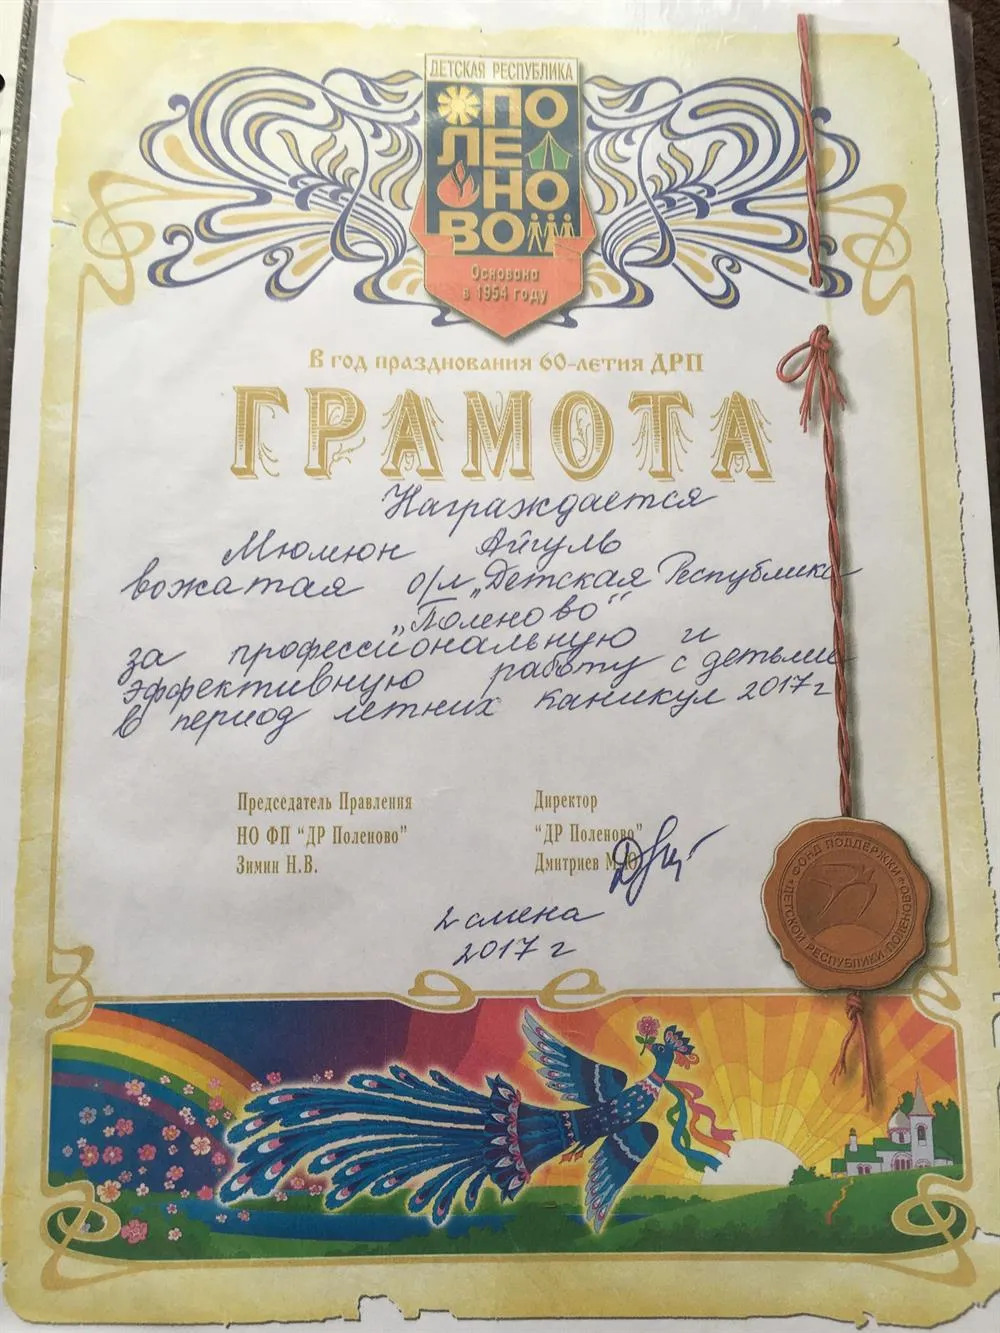 ДЕТСКАЯ РЕСПУБЛИКА
ПО
ЛЕ
НО
ВО
Основано
в 1954 году
В год празднования 60-летия ДРП
ГРАМОТА
Награждается
Мюлюн Айгуль
вожатая о/л „Детская Республика
„Поленово“
за профессиональную и
эффективную работу с детьми
в период летних каникул 2017 г
Председатель Правления
НО ФП “ДР Поленово”
Зимин Н.В.
Директор
“ДР Поленово”
Дмитриев М.Ю.
2 смена
2017 г
ФОНД ПОДДЕРЖКИ
ДЕТСКОЙ РЕСПУБЛИКИ ПОЛЕНОВО